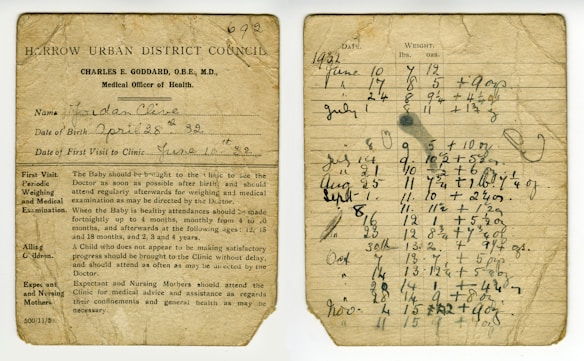 692
HARROW URBAN DISTRICT COUNCIL
CHARLES E. GODDARD, O.B.E., M.D.,
Medical Officer of Health.
Name Jordan Clive
Date of Birth April 28th 32
Date of First Visit to Clinic June 10th 32
First Visit. The Baby should be brought to the Clinic to see the
Periodic Doctor as soon as possible after birth and should
Weighing attend regularly afterwards for weighing and medical
and Medical examination as may be directed by the Doctor.
Examination. When the Baby is healthy attendances should be made
fortnightly up to 4 months, monthly from 4 to 10
months, and afterwards at the following ages: 12, 15
and 18 months, and 2, 3 and 4 years.
Ailing A Child who does not appear to be making satisfactory
Children. progress should be brought to the Clinic without delay,
and should attend as often as may be directed by the
Doctor.
Expectant Expectant and Nursing Mothers should attend the
and Nursing Clinic for medical advice and assistance as regards
Mothers their confinements and general health as may be
necessary.
DATE. WEIGHT.
lbs. ozs.
1932
June 10 7 12
" 17 8 5 + 9 ozs
" 24 8 9½
July 1 8 11
" 8 9 5 + 10 oz
July 14 9 10½ + 5½ oz
" 21 10
Aug 25 11 7¼
Sept 1 11 10
" 8 11 11½
16 12 1 + 5½ oz
" 23 12 8¾ + 7¾ oz
30th 13 2
Oct 7 13 7
" 14 13 12¼
" 28 14 9 + 8 oz
Nov 4 15
" 11 15 9